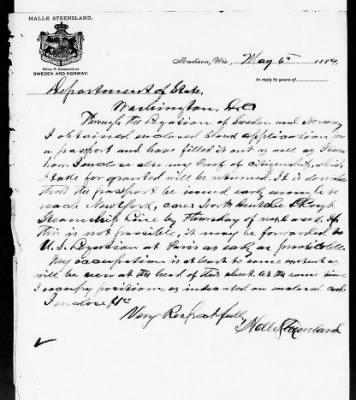 HALLE STEENSLAND,
SWEDEN AND NORWAY.
Madison, Wis., May 6th 1884
In reply to yours of
Department of State,
Washington, D.C.
Through the Legation of Sweden and Norway
I obtained enclosed blank application for
a passport and have filled it out as well as I can
I enclose also my proof of citizenship, which
I take for granted will be returned. It is
that the passport be issued early enough to
reach New York, care North German Lloyd
Steamship Line by Thursday of next week. If
this is not possible, it may be forwarded to
U.S. Legation at Paris as early as practicable.
My occupation is at least to some extent as
will be seen at the head of this sheet. At the same time
I occupy positions as indicated on enclosed card
I enclose
Very Respectfully
Halle Steensland